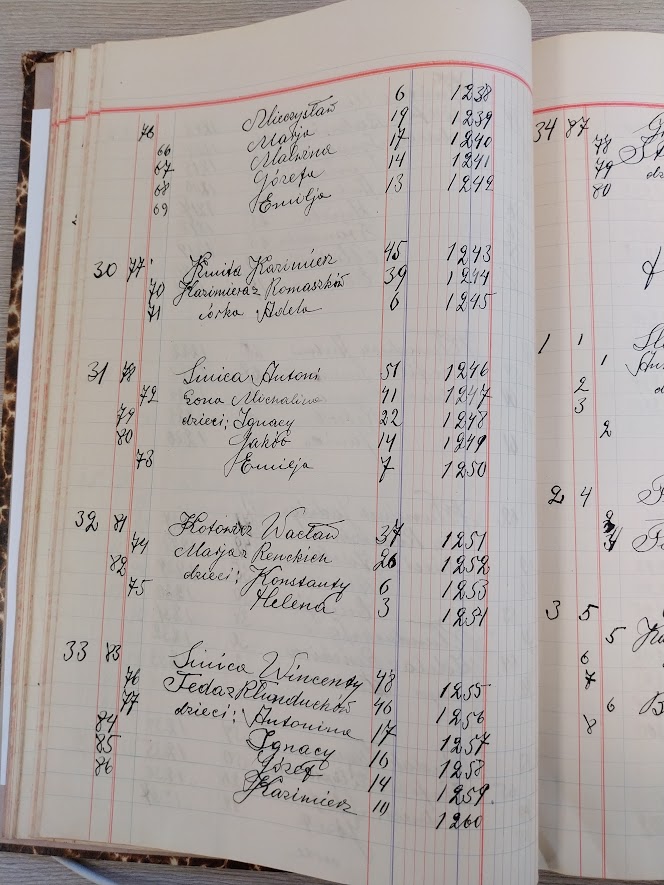 76 Mieczysław 6 1238
66 Marja 19 1239
67 Malwina 17 1240
68 Józefa 14 1241
69 Emilja 13 1242
30 77 Kmita Kazimierz 45 1243
70 Kazimiera z Romaszków 39 1244
71 córka Adela 6 1245
31 78 Sinica Antoni 51 1246
72 żona Michalina 41 1247
79 dzieci: Ignacy 22 1248
80 Jakób 14 1249
73 Emilja 7 1250
32 81 Wacław 37 1251
74 Marja z 26 1252
82 dzieci: Konstanty 6 1253
75 Helena 3 1254
33 83 Sinica Wincenty 48 1255
76 46 1256
77 dzieci: Antonina 17 1257
84 Ignacy 16 1258
85 Józef 14 1259
86 Kazimierz 10 1260
34 87
78
79
80
1 1
1
2
3
2
2 4
3 5
5
6
7
6
8